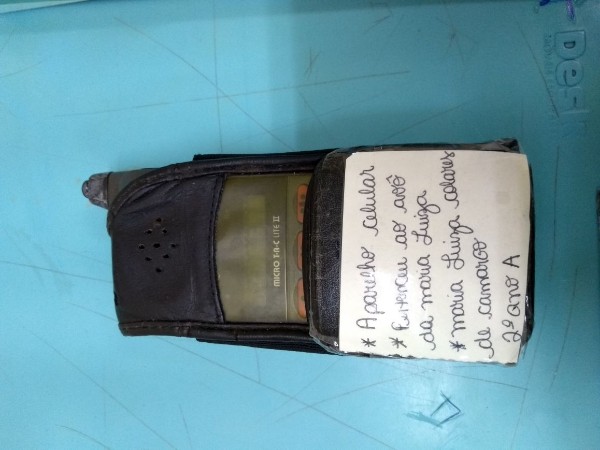 MICRO T·A·C LITE II
* Aparelho celular
* Pertenceu ao avô
da maria Luiza
* maria Luiza colares
de camargo
2º ano A